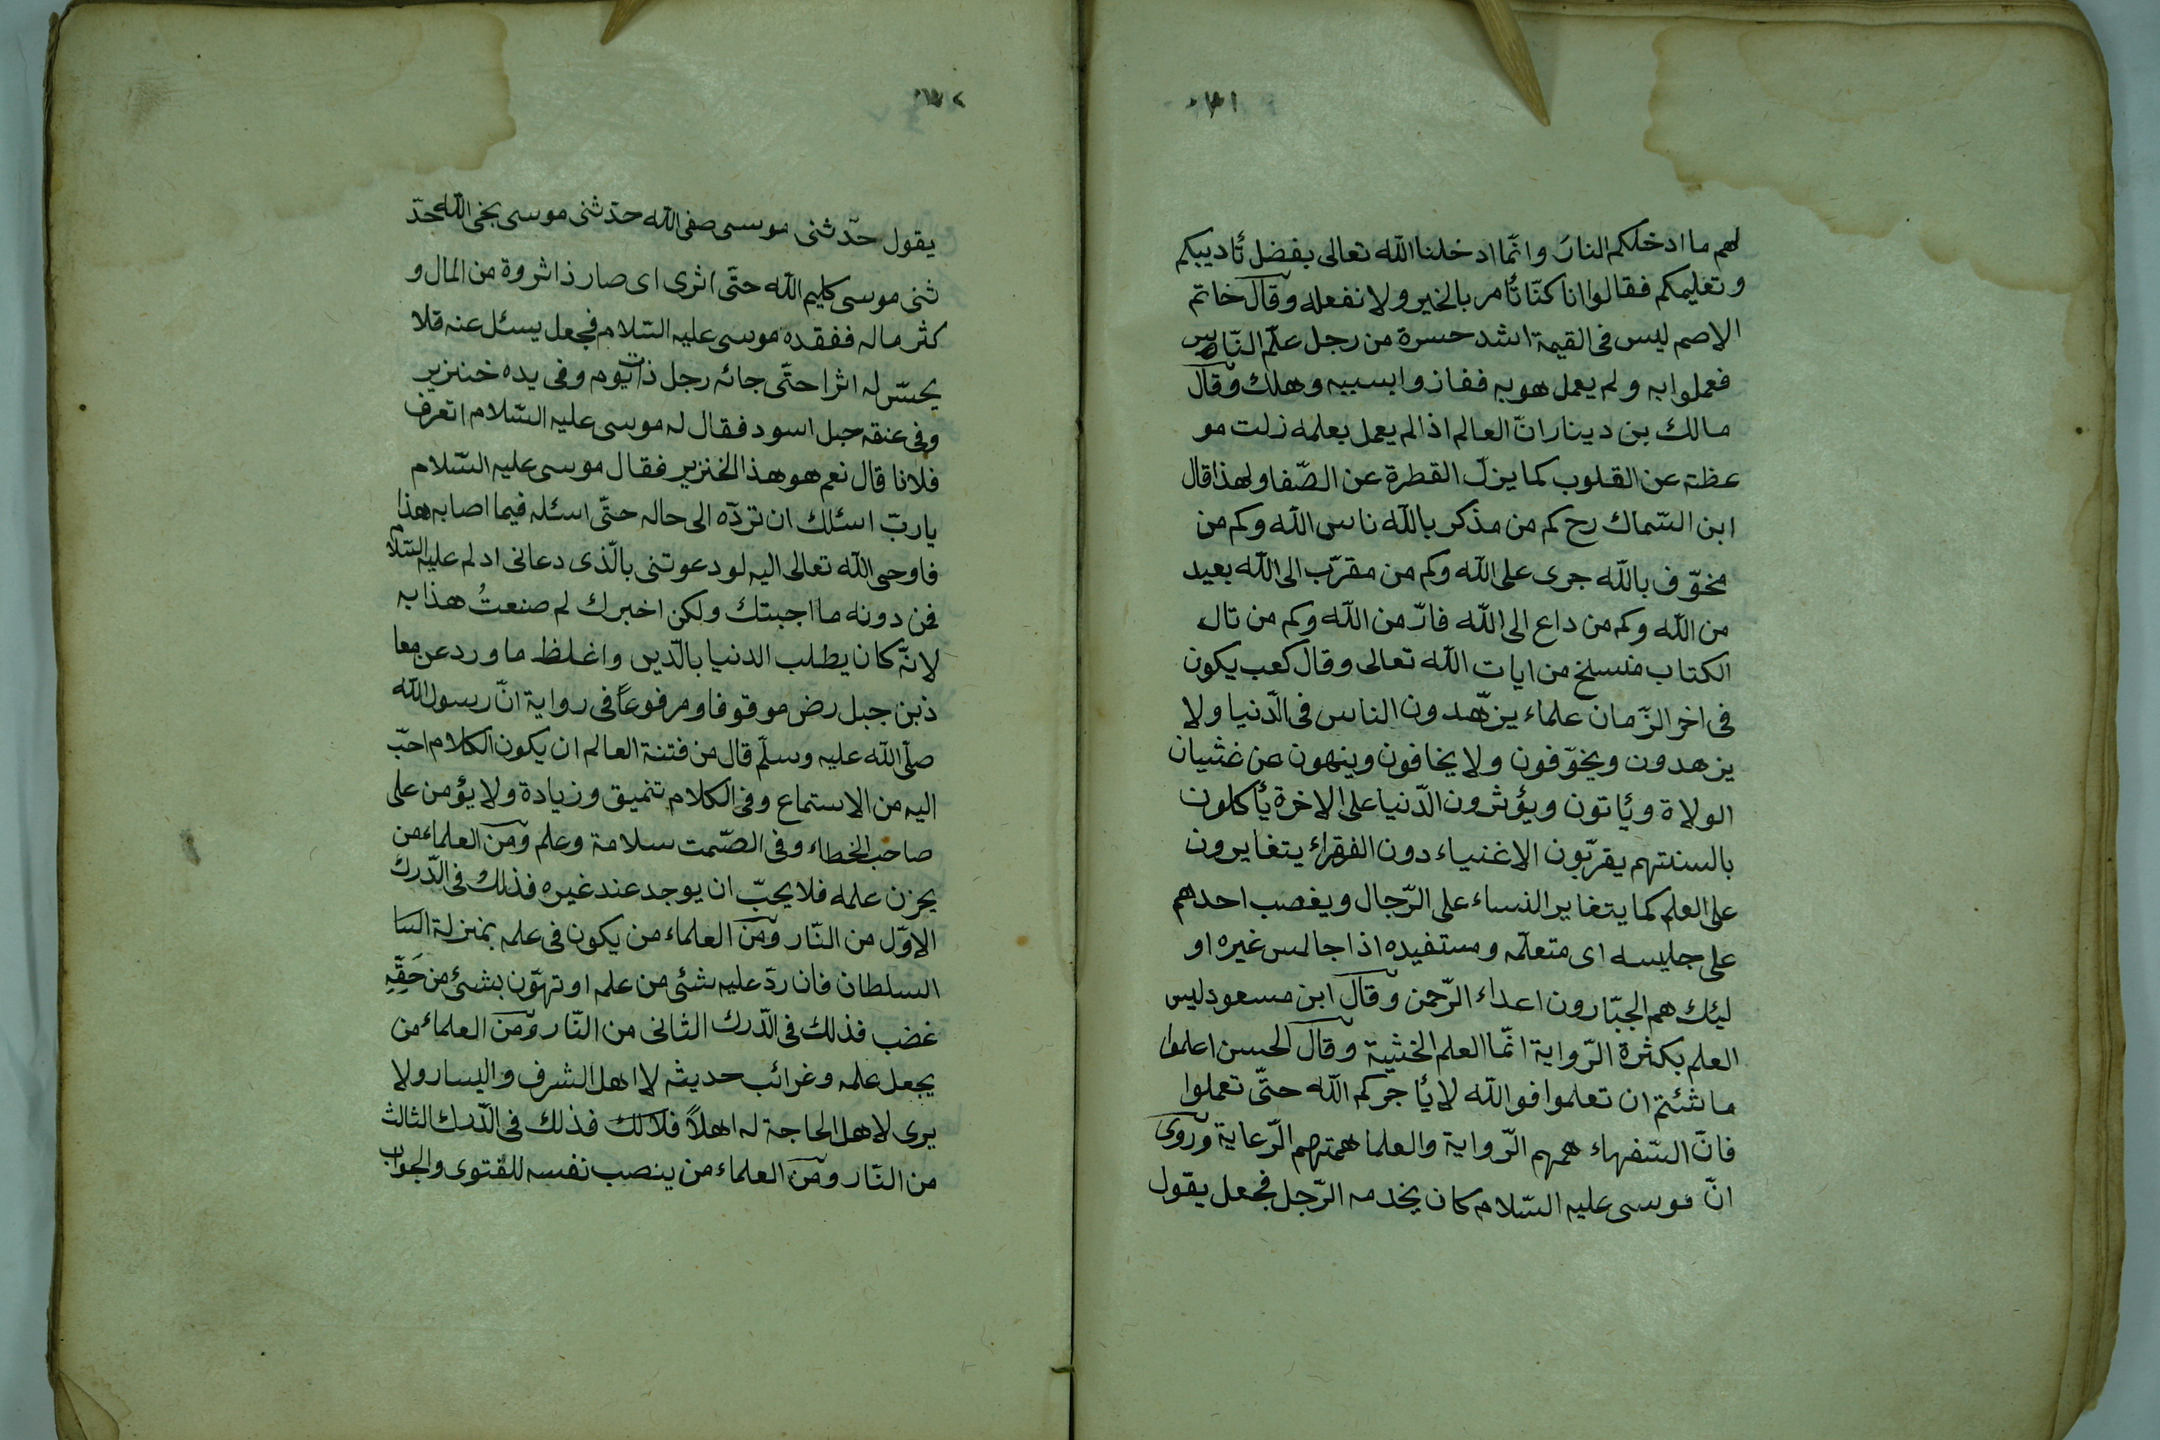 لهم ما ادخلكم النار وانّما ادخلنا اللّه تعالى بفضل تأديبكم
وتعليمكم فقالوا انا كنّا نأمر بالخير ولا نفعله وقال خاتم
الاصم ليس فى القيمة اشد حسرة من رجل علّم النّاس
فعملوا به ولم يعمل هو به ففازوا بسببه وهلك وقال
مالك بن دينار انّ العالم اذا لم يعمل بعلمه زلت مو
عظته عن القلوب كما يزلّ القطرة عن الصّفا ولهذا قال
ابن السّماك رح كم من مذكر باللّه ناس اللّه وكم من
مخوّف باللّه جرى على اللّه وكم من مقرّب الى اللّه بعيد
من اللّه وكم من داع الى اللّه فارّ من اللّه وكم من تال
الكتاب منسلخ من ايات اللّه تعالى وقال كعب يكون
فى اخر الزّمان علماء يزهّدون الناس فى الدّنيا ولا
يزهدون ويخوّفون ولا يخافون وينهون عن غثيان
الولاة ويأتون ويؤثرون الدّنيا على الاخرة يأكلون
بالسنتهم يقرّبون الاغنياء دون الفقراء يتغايرون
على العلم كما يتغاير النساء على الرّجال ويغصب احدهم
على جليسه اى متعلّمه ومستفيده اذا جالس غيره او
لئك هم الجبّارون اعداء الرّحمن وقال ابن مسعود ليس
العلم بكثرة الرّواية انّما العلم الخشية وقال الحسن اعلموا
ما شئتم ان تعلموا فواللّه لا يأجركم اللّه حتّى تعملوا
فانّ السّفهاء همهم الرّواية والعلما همتهم الرّعاية وروى
انّ موسى عليه السّلام كان يخدمه الرّجل فجعل يقول
يقول حدّثنى موسى صفى اللّه حدّثنى موسى نجى اللّه حدّ
ثنى موسى كليم اللّه حتّى اثرى اى صار ذا ثروة من المال و
كثر ماله ففقده موسى عليه السّلام فجعل يسئل عنه فلا
يحسّ له اثرا حتّى جائه رجل ذات يوم وفى يده خنزير
وفى عنقه حبل اسود فقال له موسى عليه السّلام اتعرف
فلانا قال نعم هو هذا الخنزير فقال موسى عليه السّلام
يا ربّ اسئلك ان تردّه الى حاله حتّى اسئله فيما اصابه هذا
فاوحى اللّه تعالى اليه لو دعوتنى بالّذى دعانى ادم عليه السّلام
فمن دونه ما اجبتك ولكن اخبرك لم صنعتُ هذا به
لانّه كان يطلب الدنيا بالدّين واغلظ ما ورد عن معا
ذ بن جبل رض موقوفا ومرفوعاً فى رواية انّ رسول اللّه
صلّى اللّه عليه وسلّم قال من فتنة العالم ان يكون الكلام احبّ
اليه من الاستماع وفى الكلام تنميق وزيادة ولا يؤمن على
صاحبه الخطاء وفى الصّمت سلامة وعلم ومن العلماء من
يخزن علمه فلا يحبّ ان يوجد عند غيره فذلك فى الدّرك
الاوّل من النّار ومن العلماء من يكون فى علمه بمنزلة السا
السلطان فان ردّ عليه شئى من علمه او تهوّن بشئ من حَقِّهِ
غضب فذلك فى الدّرك الثانى من النّار ومن العلماء من
يجعل علمه وغرائب حديثه لا اهل الشرف واليسار ولا
يرى لاهل الحاجة له اهلاً فلالك فذلك فى الدّرك الثالث
من النّار ومن العلماء من ينصب نفسه للفتوى والجواب